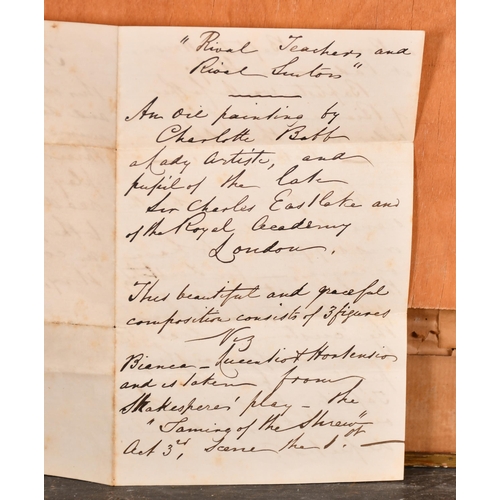 "Rival Teachers and
Rival Suitors"
An oil painting by
Charlotte Babb
a Lady Artiste, and
pupil of the late
Sir Charles Eastlake and
of the Royal Academy
London.
This beautiful and graceful
composition consists of 3 figures
Viz
Bianca - Lucentio & Hortensio
and is taken from
Shakespere's play - the
"Taming of the Shrew"
Act 3rd, Scene the 1st -